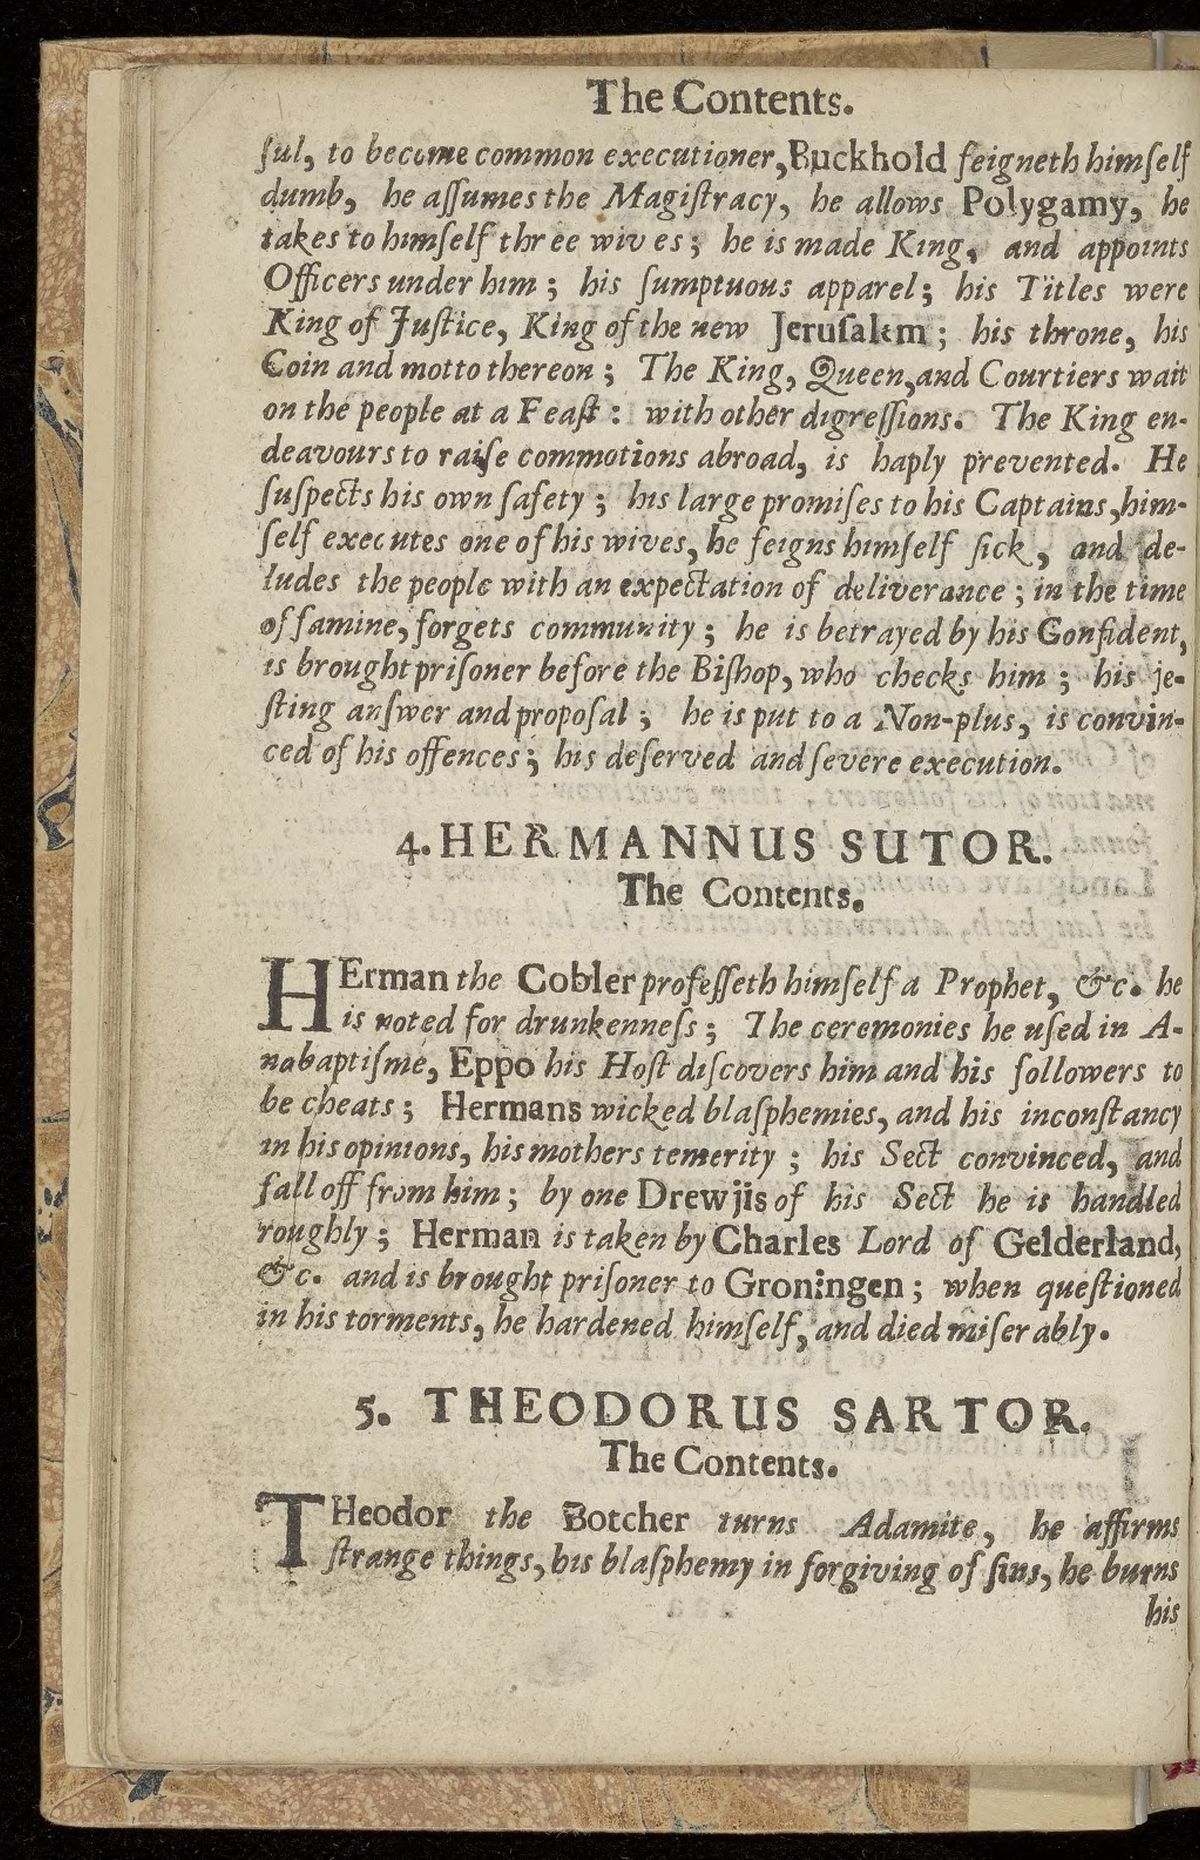 The Contents.
ſul, to become common executioner, Buckhold feigneth himſelf
dumb, he aſſumes the Magiſtracy, he allows Polygamy, he
takes to himſelf three wives; he is made King, and appoints
Officers under him; his ſumptuous apparel; his Titles were
King of Juſtice, King of the new Jeruſalem; his throne, his
Coin and motto thereon; The King, Queen, and Courtiers wait
on the people at a Feaſt: with other digreſſions. The King en-
deavours to raiſe commotions abroad, is haply prevented. He
ſuſpects his own ſafety; his large promiſes to his Captains, him-
ſelf executes one of his wives, he feigns himſelf ſick, and de-
ludes the people with an expectation of deliverance; in the time
of famine, forgets community; he is betrayed by his Gonfident,
is brought priſoner before the Biſhop, who checks him; his je-
ſting anſwer and propoſal; he is put to a Non-plus, is convin-
ced of his offences; his deſerved and ſevere execution.
4. HERMANNUS SUTOR.
The Contents.
HErman the Cobler profeſſeth himſelf a Prophet, &c. he
is noted for drunkenneſs; The ceremonies he uſed in A-
nabaptiſme, Eppo his Hoſt diſcovers him and his followers to
be cheats; Hermans wicked blaſphemies, and his inconſtancy
in his opinions, his mothers temerity; his Sect convinced, and
fall off from him; by one Drewjis of his Sect he is handled
roughly; Herman is taken by Charles Lord of Gelderland,
&c. and is brought priſoner to Groningen; when queſtioned
in his torments, he hardened himſelf, and died miſerably.
5. THEODORUS SARTOR.
The Contents.
THeodor the Botcher turns Adamite, he affirms
ſtrange things, his blaſphemy in forgiving of ſins, he burns
his